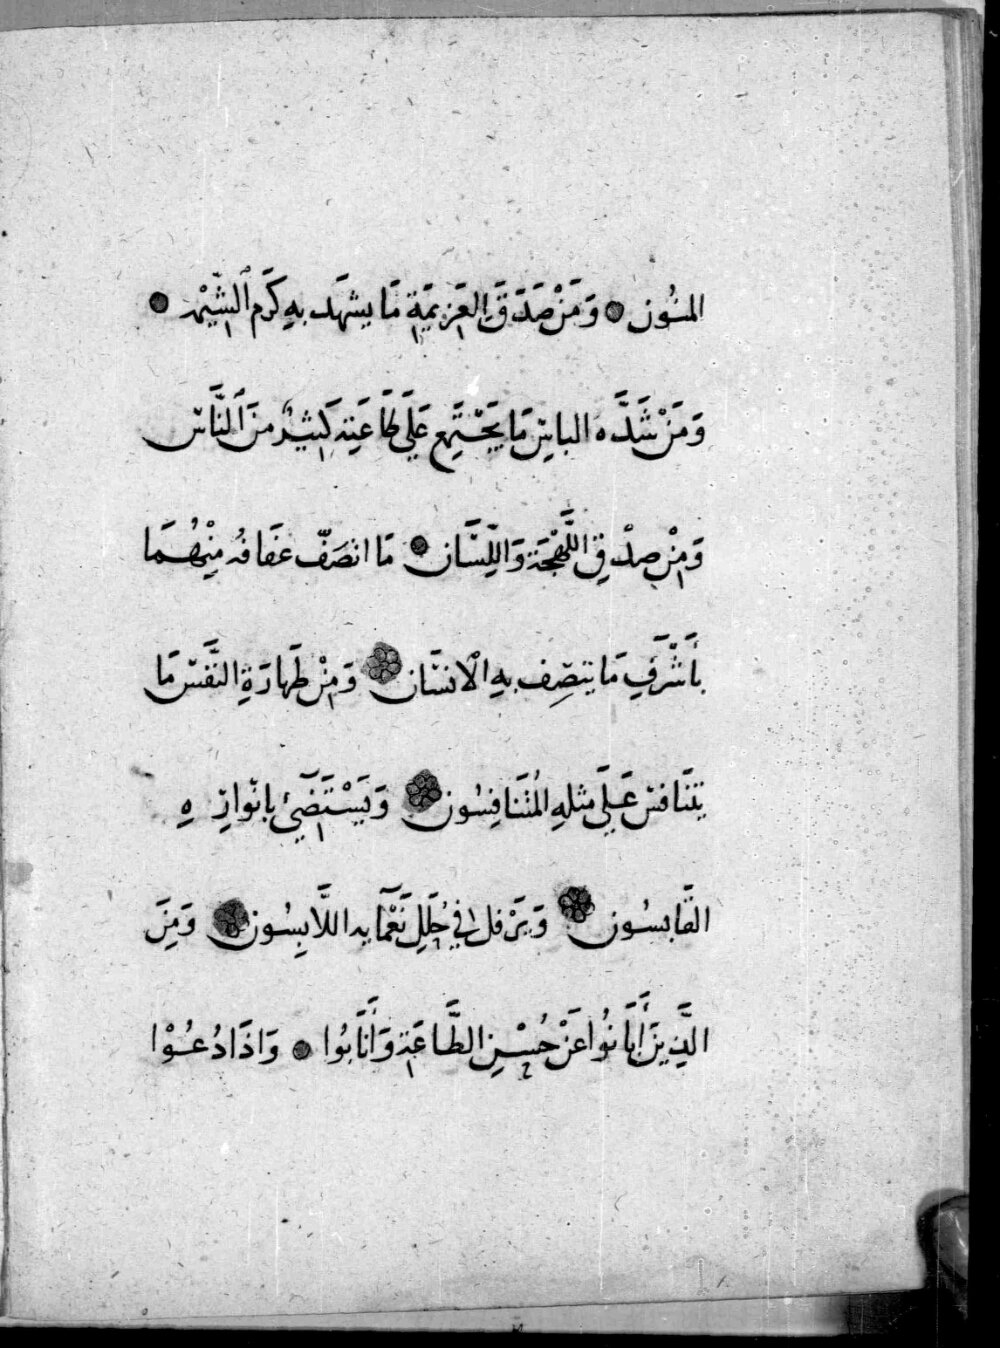 المَنُون ● وَمَنْ صَدَقَ العَزِيمَةِ مَا يشهَد بهِ كَرَم الشِّيْم ●
وَمَنْ شَدَّه الباسِ مَا يَجْتَمِع عَلَى طَاعَتِه كَثِيرٌ منَ النَّاس
وَمِنْ صِدْقِ اللَّهْجَةِ وَاللِّسَان ● مَا اتصَفّ عَفَافه مِنْهُمَا
بأَشْرَفِ مَا يتصِف بهِ الانسَان وَمِنْ طَهارَةِ النَّفس مَا
يتنَافس عَلَى مثلهِ المُتَنَافِسُون وَيَسْتَضِيٓئ بانوارِهِ
القَابسُون وَيَرْفل فِي حُلَلِ نَعْمَآيه اللَّابِسُون وَمِنَ
الَّذِينَ أَبَانُوا عَنْ حُسْنِ الطَّاعَةِ وَأَنَابُوا ● وَاذَا دُعُوْا